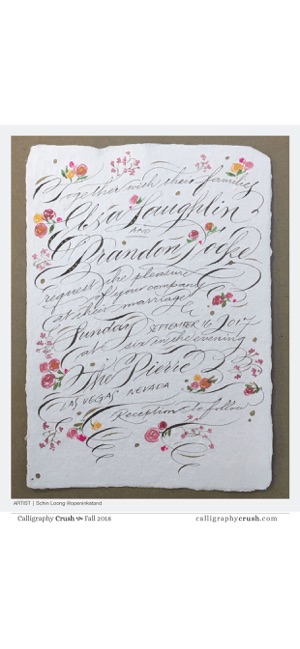 Together with their families
Elsa Laughlin
AND
Brandon Locke
request the pleasure
of your company
at their marriage
Sunday SEPTEMBER 16, 2017
at six in the evening
The Pierre
LAS VEGAS NEVADA
Reception to follow
ARTIST | Schin Loong @openinkstand
Calligraphy Crush Fall 2018
calligraphycrush.com